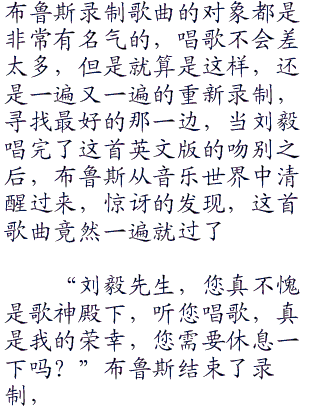 布鲁斯录制歌曲的对象都是
非常有名气的，唱歌不会差
太多，但是就算是这样，还
是一遍又一遍的重新录制，
寻找最好的那一边，当刘毅
唱完了这首英文版的吻别之
后，布鲁斯从音乐世界中清
醒过来，惊讶的发现，这首
歌曲竟然一遍就过了
“刘毅先生，您真不愧
是歌神殿下，听您唱歌，真
是我的荣幸，您需要休息一
下吗？”布鲁斯结束了录
制，